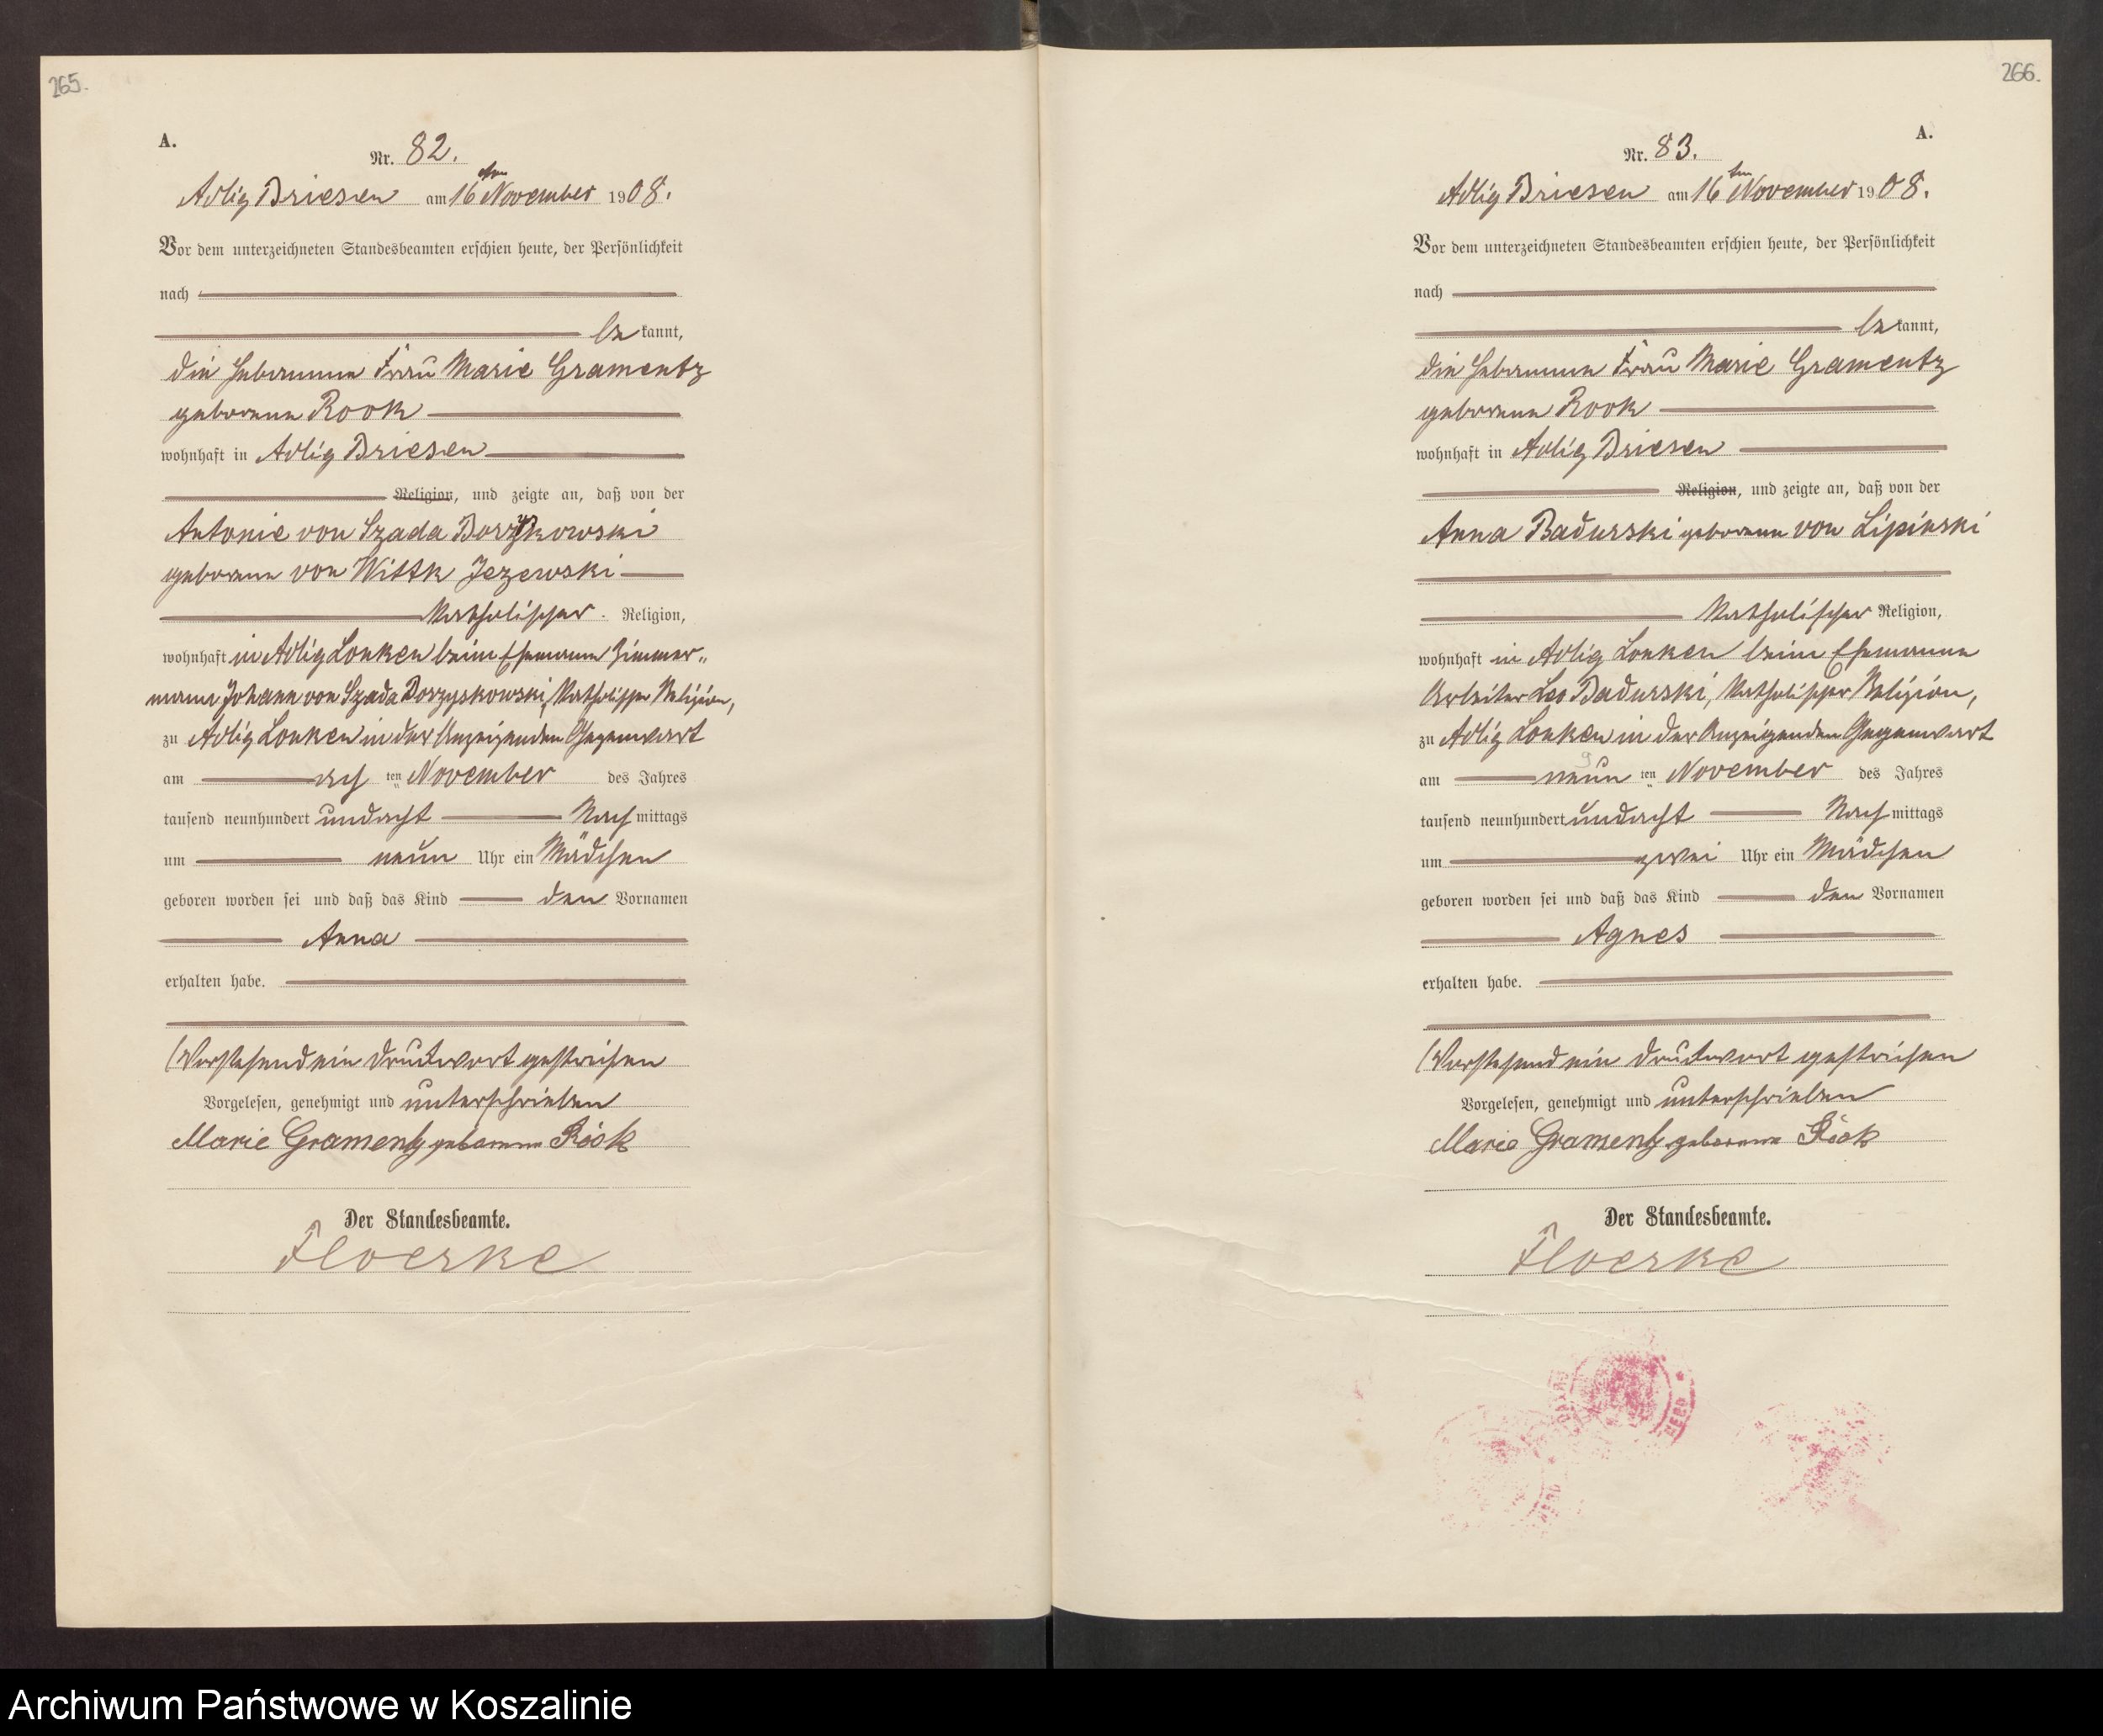 265.
A.
Nr. 82.
Adlig Briesen am 16ten November 1908.
Vor dem unterzeichneten Standesbeamten erschien heute, der Persönlichkeit
nach
be kannt,
die Hebamme Frau Marie Gramentz
geborene Rook
wohnhaft in Adlig Briesen
Religion, und zeigte an, daß von der
Antonie von Szada Borzyskowski
geborene von Wittk Jezewski
katholischer Religion,
wohnhaft in Adlig Lonken beim Ehemann Zimmer„
mann Johann von Szada Borzyskowski, katholischer Religion,
zu Adlig Lonken in der Anzeigenden Gegenwart
am ach ten November des Jahres
tausend neunhundert undacht Nach mittags
um neun Uhr ein Mädchen
geboren worden sei und daß das Kind den Vornamen
Anna
erhalten habe.
(Vorstehend ein Druckwort gestrichen
Vorgelesen, genehmigt und unterschrieben
Marie Gramentz geborene Röok
Der Standesbeamte.
Floerke
266.
A.
Nr. 83.
Adlig Briesen am 16ten November 1908.
Vor dem unterzeichneten Standesbeamten erschien heute, der Persönlichkeit
nach
be kannt,
die Hebamme Frau Marie Gramentz
geborene Rook
wohnhaft in Adlig Briesen
Religion, und zeigte an, daß von der
Anna Badurski geborene von Lipinski
katholischer Religion,
wohnhaft in Adlig Lonken beim Ehemanne
Arbeiter Leo Badurski, katholischer Religion,
zu Adlig Lonken in der Anzeigenden Gegenwart
am neun ten November des Jahres
tausend neunhundert undacht Nach mittags
um zwei Uhr ein Mädchen
geboren worden sei und daß das Kind den Vornamen
Agnes
erhalten habe.
(Vorstehend ein Druckwort gestrichen
Vorgelesen, genehmigt und unterschrieben
Marie Gramentz geborene Röok
Der Standesbeamte.
Floerke
Archiwum Państwowe w Koszalinie